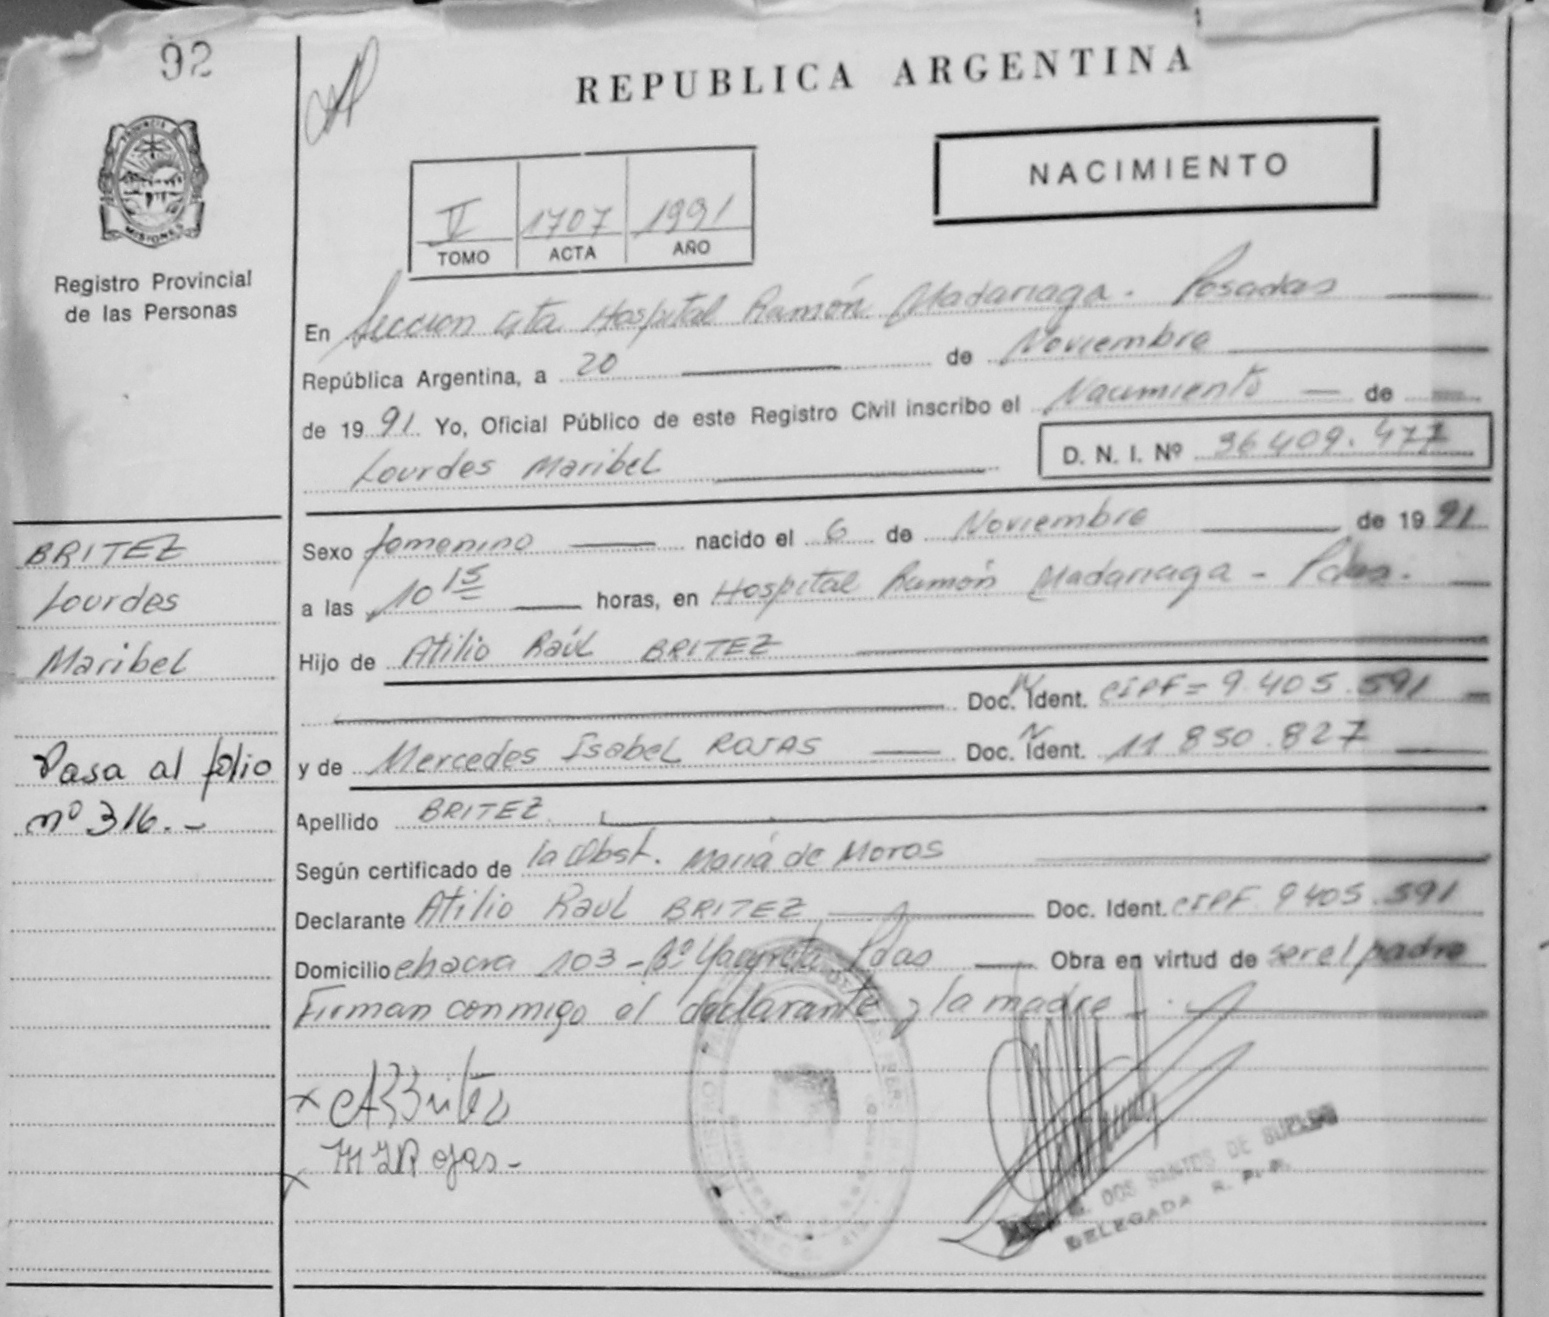 92
REPUBLICA ARGENTINA
NACIMIENTO
PROVINCIA DE
MISIONES
Registro Provincial
de las Personas
V 1707 1991
TOMO ACTA AÑO
En Sección 4ta Hospital Ramón Madariaga. Posadas
República Argentina, a 20 de Noviembre
de 1991 Yo, Oficial Público de este Registro Civil inscribo el Nacimiento de
Lourdes Maribel
D. N. I. Nº 36409.477
BRITEZ
Lourdes
Maribel
Pasa al folio
nº 316.-
Sexo femenino nacido el 6 de Noviembre de 1991
a las 10 15 horas, en Hospital Ramón Madariaga - Pdas.
Hijo de Atilio Raúl BRITEZ
Doc. Ident. CIPF = 9.405.591
y de Mercedes Isabel ROJAS Doc. Ident. 11 850.827
Apellido BRITEZ
Según certificado de la Obst. María de Moros
Declarante Atilio Raul BRITEZ Doc. Ident. CIPF 9405.591
Domicilio chacra 103 - Bº Yacyreta Pdas Obra en virtud de ser el padre
Firman conmigo el declarante y la madre.
x ARBritez
x MIRojas-
DOS SANTOS DE
DELEGADA R. P. P.